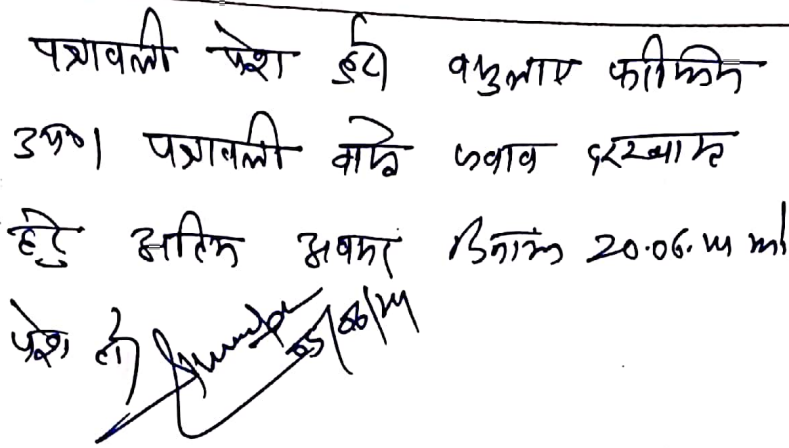 पत्रावली पेश हुई। वकुलाए फरीकेन
उप०। पत्रावली वास्ते जवाब दरख्वास्त
हेतु अंतिम अवसर दिनांक 20.06. को
पेश हो।
05/06/